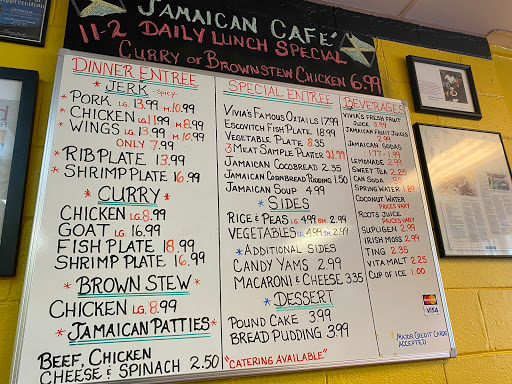 JAMAICAN CAFE'
11-2 DAILY LUNCH SPECIAL
CURRY OR BROWNSTEW CHICKEN 6.99
DINNER ENTREE
* JERK -SPICY-
* PORK LG. 13.99 M. 10.99
* CHICKEN LG 11.99 M. 8.99
* WINGS LG. 13.99 M. 10.99
ONLY 7.99
* RIB PLATE 13.99
* SHRIMP PLATE 16.99
* CURRY *
CHICKEN LG. 8.99
GOAT LG. 16.99
FISH PLATE 18.99
SHRIMP PLATE 16.99
* BROWN STEW *
CHICKEN LG. 8.99
* JAMAICAN PATTIES *
BEEF, CHICKEN
CHEESE & SPINACH 2.50
SPECIAL ENTREE
VIVIA'S FAMOUS OXTAILS 17.99
ESCOVITCH FISH PLATE 18.99
VEGETABLE PLATE 8.35
3 MEAT SAMPLE PLATER 21.99
JAMAICAN COCOBREAD 2.35
JAMAICAN CORNBREAD PUDDING 1.50
JAMAICAN SOUP 4.99
* SIDES
RICE & PEAS LG 4.99 SM. 2.99
VEGETABLES LG 4.99 SM. 2.99
* ADDITIONAL SIDES
CANDY YAMS 2.99
MACARONI & CHEESE 3.35
* DESSERT
POUND CAKE 3.99
BREAD PUDDING 3.99
"CATERING AVAILABLE"
BEVERAGES
VIVIA'S FRESH FRUIT
JUICE 3.99
JAMAICAN FRUIT JUICES
2.99
JAMAICAN SODAS
1.77 - 1.99
LEMONADE 2.99
SWEET TEA 2.25
CAN SODA
SPRING WATER
COCONUT WATER
PRICES VARY
ROOTS JUICE
PRICES VARY
SUPLIGEN 2.99
IRISH MOSS 2.99
TING 2.35
VITA MALT 2.25
CUP OF ICE 1.00
VISA
MAJOR CREDIT CARDS
ACCEPTED